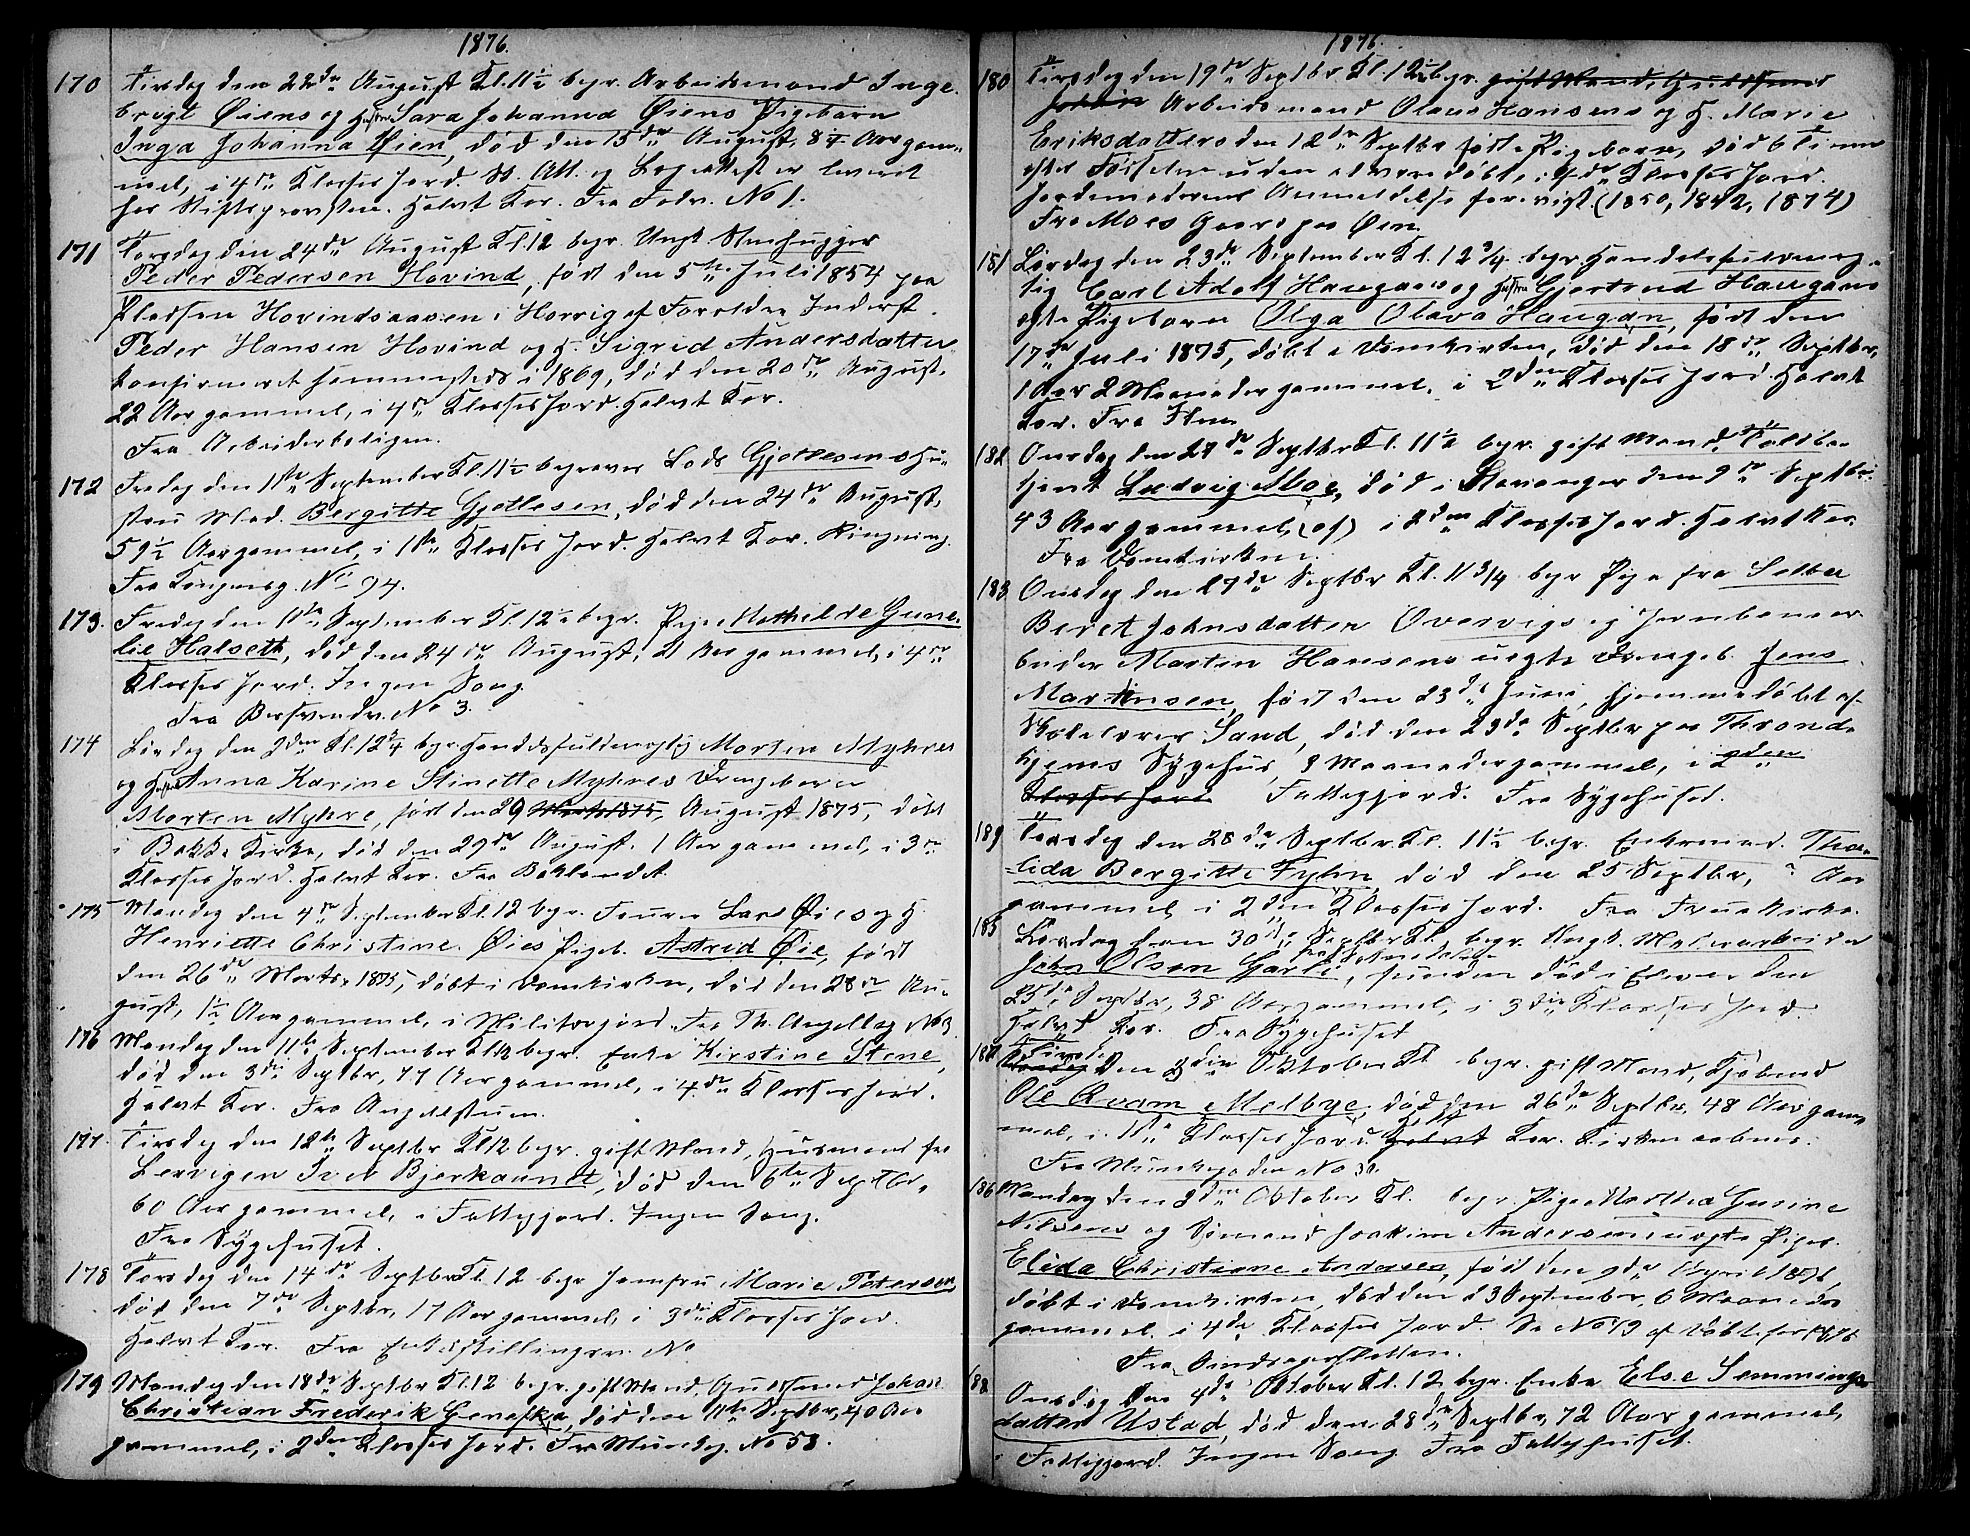 1876.
170 Tirsdag den 22de August Kl. 11½ begr. Arbeidsmand Inge-
brigt Øiens og Hustru Sara Johanna Øiens Pigebarn
Inga Johanna Øien, død den 15de August, Aar gam-
mel, i 4de Klasses Jord. Sk. Att. og Lægeattest er leveret
hos Stiftsprovsten. Halvt Kor. Fra No 1.
171 Torsdag den 24de August Kl. 12 begr. Ungk. Stenhugger
Peder Pedersen Hovind, født den 5te Juli 1854 paa
Pladsen Hovindsaasen i Horrig af Forældre Inderst
Peder Hansen Hovind og H. Sigrid Andersdatter,
konfirmeret sammesteds i 1869, død den 20de August,
22 Aar gammel, i 4de Klasses Jord. Halvt Kor.
Fra Arbeiderboligen.
172 Fredag den 1ste September Kl. 11½ begraves Lods Gjellesens Hu-
stru Mad. Bergitte Gjellesen, død den 24de August,
59½ Aar gammel, i 1ste Klasses Jord. Halvt Kor. Ringning.
Fra Kongensg. No 94.
173. Fredag den 1ste September Kl. 12½ begr. Pige Mathilde Gune-
lie Halseth, død den 24de August, 21 Aar gammel, i 4de
Klasses Jord. Ingen Sang.
Fra Bersvendv. No 3.
174 Lørdag den 2den Kl. 12¾ begr. Handelsfuldmægtig Morten Myhres
og Hustru Anna Karine Stinette Myhres Drengebarn
Morten Myhre, født den 29 Marts 1875, August 1875, døbt
i Bakke Kirke, død den 29de August. 1 Aar gammel, i 3die
Klasses Jord. Halvt Kor. Fra Baklandet
175 Mandag den 4de September Kl. 12 begr. Lars Øies og H.
Henriette Christine Øies Pigeb. Astrid Øie, født
den 26de Marts 1875, døbt i Domkirken, død den 28de Au-
gust, 1½ Aar gammel, i Militærjord. Fra Th. Angellsg No 3
176 Mandag den 11te September Kl 12 begr. Enke Kirstine Stene,
død den 3die Septbr, 77 Aar gammel, i 4de Klasses Jord.
Halvt Kor. Fra Angelstuen.
177. Tirsdag den 12te Septbr Kl 12 begr. gift Mand, Husmand fra
Lervigen Iver Bjerkaunet, død den 6te Septbr,
60 Aar gammel, i Fattigjord. Ingen Sang.
Fra Sygehuset.
178 Torsdag den 14de Septbr Kl. 12 begr. Jomfru Marie Petersen
død den 7de Septbr, 17 Aar gammel, i 3die Klasses Jord.
Halvt Kor. Fra Enkestillingsv. No
179 Mandag den 18de Septbr Kl. 12 begr. gift Mand, Guldsmed Johan
Christian Frederik død den 11te Septbr, 40 Aar
gammel, i 2den Klasses Jord. Fra Munkeg. No 53.
1876.
180 Tirsdag den 19de Septbr Kl. 12½ begr. gift Mand, Guldsmed
Johan Arbeidsmand Olaus Hansens og H. Marie
Eriksdatters den 12te Septbr fødte Pigebarn, død 6 Timer
efter Fødselen uden at være døbt, i 4de Klasses Jord.
Jordemoderens Anmeldelse forevist. (1850, 1842, 1874)
Fra Moes Gaard paa Øen
181 Lørdag den 23de September Kl. 12¾ begr. Handelsfuldmæg-
tig Carl Adolf Haugans og Hustru Gjertrud Haugans
ægte Pigebarn Olga Olava Haugan, født den
17de Juli 1875, døbt i Domkirken, død den 18de Septbr,
1 Aar 2 Maaneder gammel, i 2den Klasses Jord. Halvt
Kor. Fra Ilen
182 Onsdag den 27de Septbr Kl. 11½ begr. gift Mand, Toldbe-
tjent Ludvig Moe, død i Stavanger den 9de Septbr
43 Aar gammel, (af) i 2den Klasses Jord. Halvt Kor.
Fra Domkirken.
183 Onsdag den 27de Septbr Kl. 11¾ begr Pige fra Selbu
Beret Johnsdatter Overvigs og Jernbanear-
beider Martin Hansens uægte Drengeb. Jens
Martinsen, født den 23de Juni, hjemmedøbt af
Skolelærer Sand, død den 23de Septbr paa Throndh-
hjems Sygehus, Maaneder gammel, i 2den
Klasses Jord Fattigjord. Fra Sygehuset.
184 Torsdag den 28de Septbr Kl. 11½ begr. Enkemad. Tho-
lida Bergitte Fyhn, død den 25 Septbr, Aar
gammel, i 2den Klasses Jord. Fra Fruekirke.
185 Lørdag den 30te Septbr Kl. begr. Ungk. Malerarbeider
John Olsen Garli, funden død i Elven den
25de Septbr, 38 Aar gammel, i 3die Klasses Jord.
Halvt Kor. Fra Sygehuset
187 Mandag Tirsdag den 3die Oktober Kl. begr. gift Mand, Kjøbmd
Ole Qvam Melbye, død den 26de Septbr, 48 Aar gam-
mel, i 1ste Klasses Jord Halvt Helt Kor. Kirken aabnes.
Fra Munkegaden No 30.
186 Mandag den 2den Oktober Kl. begr. Pige Marthea Gusine
Nilsens og Sømand Joakim Andersens uægte Pigeb.
Elida Christiane Andersen, født den 9de April 1876,
døbt i Domkirken, død den 23 September, 6 Maaneder
gammel. i 4de Klasses Jord. Se No 19 af døbte for 1876
Fra
188 Onsdag den 4de Oktober Kl. 12 begr. Enke Else Semmings-
datter Ustad, død den 28de Septbr, 72 Aar gammel,
i Fattigjord. Ingen Sang. Fra Fattighuset.